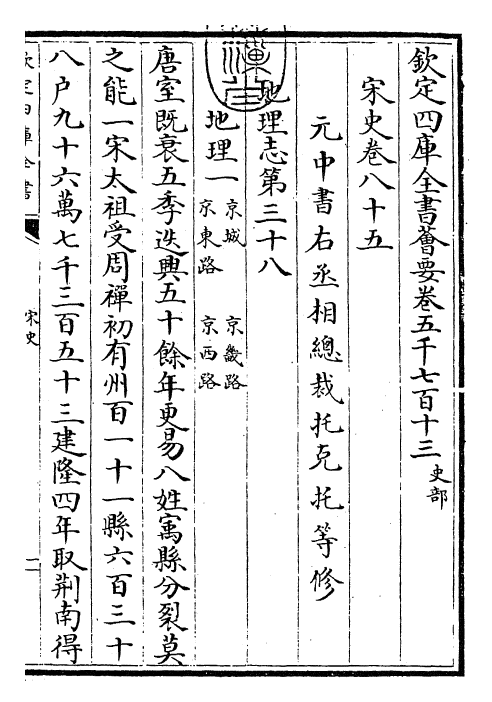 欽定四庫全書薈要卷五千七百十三 史部
宋史卷八十五
元中書右丞相總裁托克托等修
地理志第三十八
地理一 京城 京畿路
京東路 京西路
唐室既衰五季迭興五十餘年更易八姓㝢縣分裂莫
之能一宋太祖受周禪初有州百一十一縣六百三十
八户九十六萬七千三百五十三建隆四年取荆南得
欽定四庫全書
宋史
一